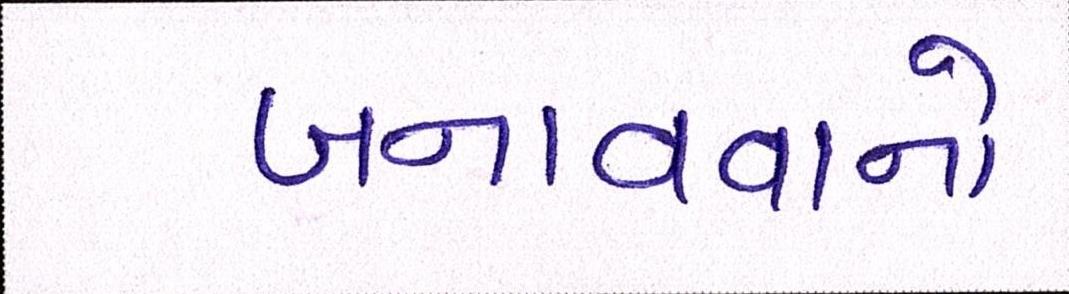 બનાવવાનો